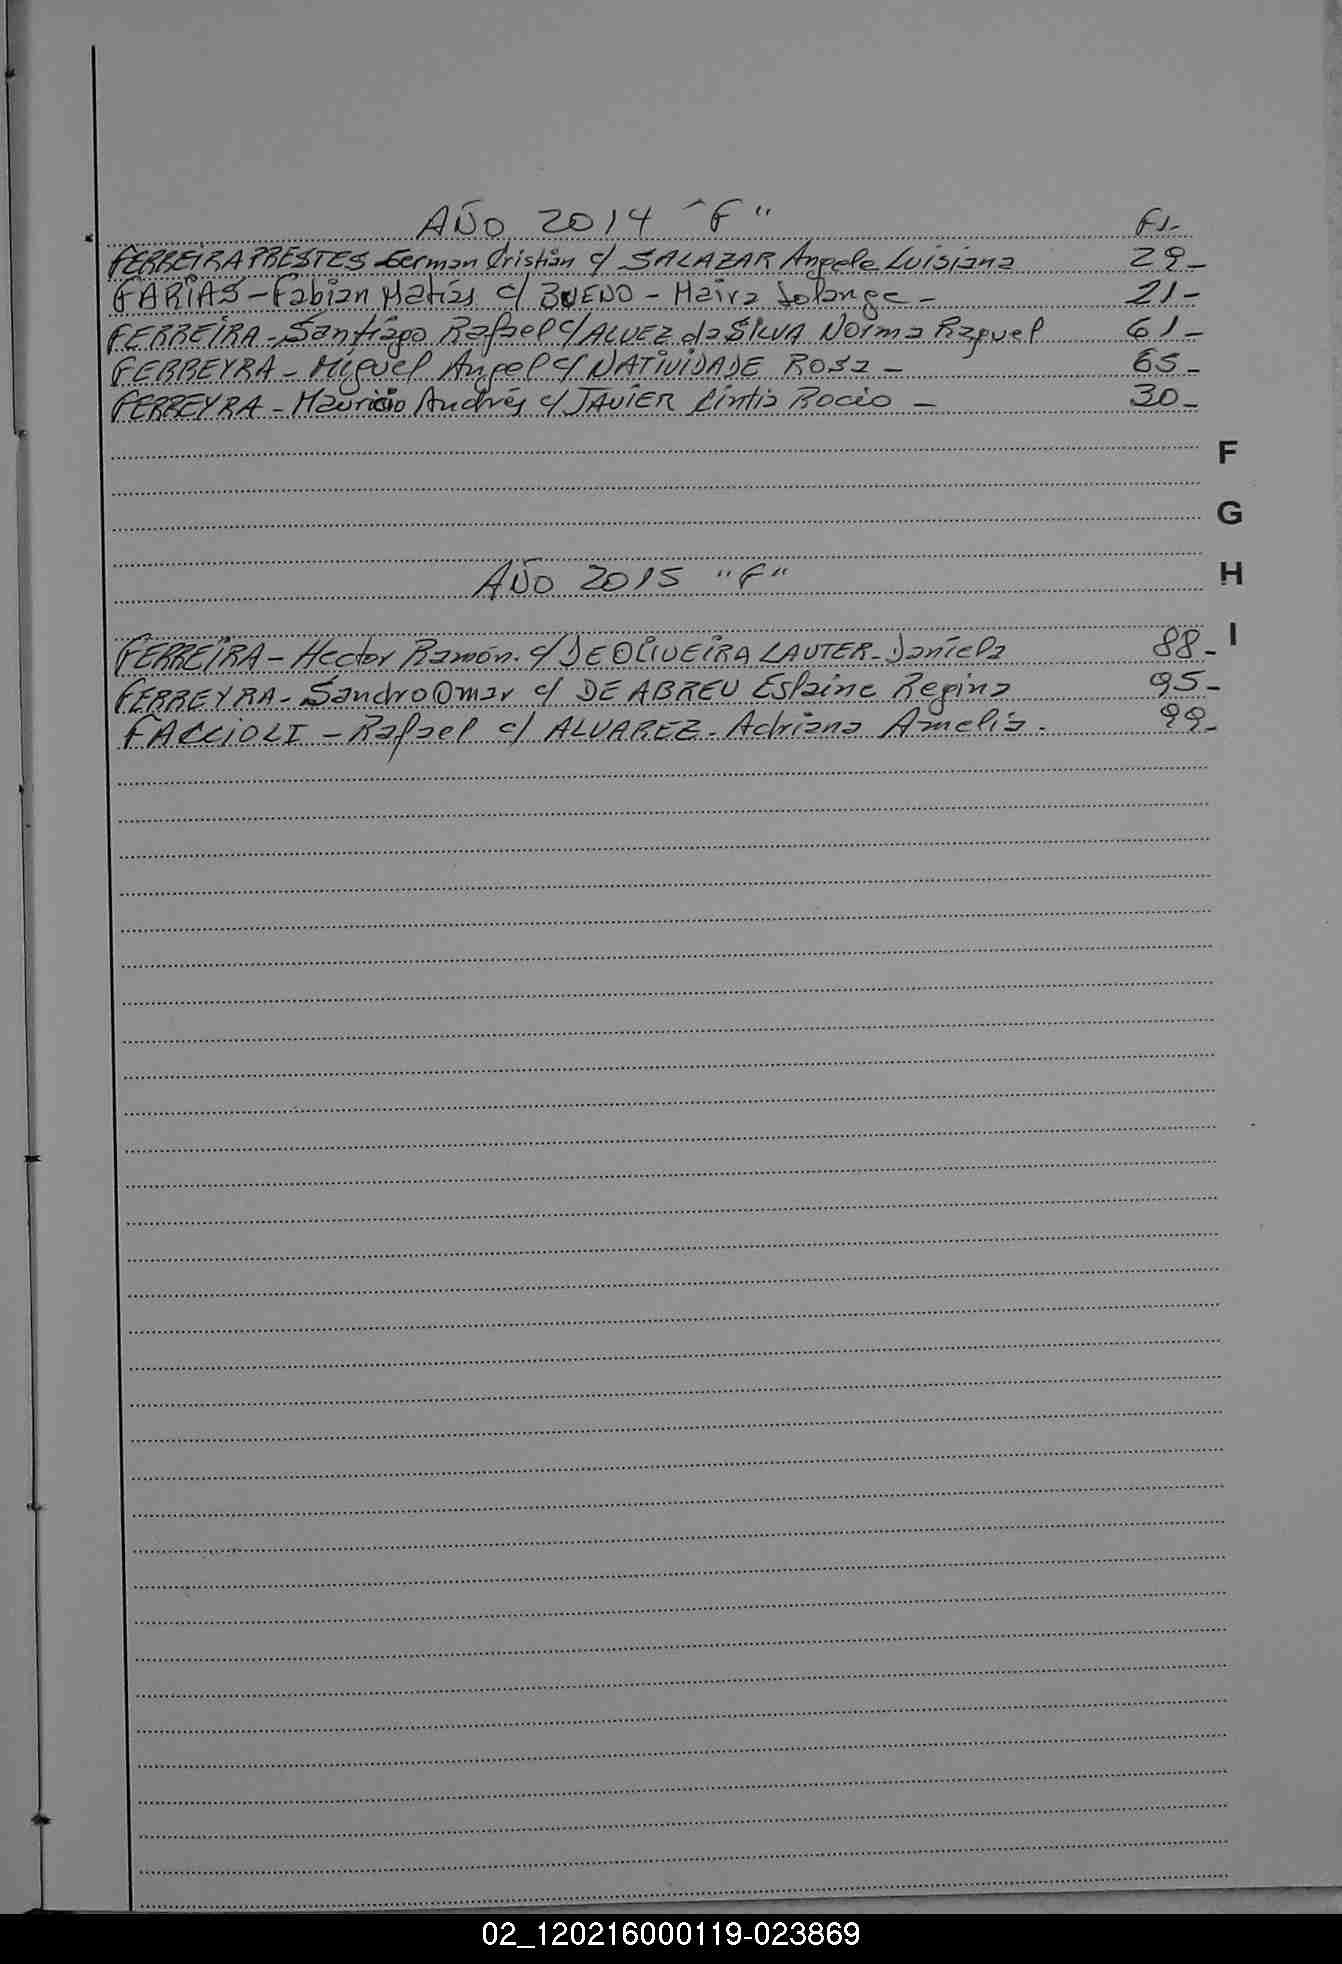 AÑO 2014 "F" Fs.
FERREIRA PRESTES German Cristian c/ SALAZAR Angele Luisiana 29-
FARIAS - Fabian Matías c/ BUENO - Maira Solange - 21-
FERREIRA - Santiago Rafael c/ ALVEZ da SILVA Norma Raquel 61-
FERREYRA - Miguel Angel c/ NATIVIDADE ROSA - 65-
FERREYRA - Mauricio Andrés c/ JAVIER Cintia Rocio - 30-
F
G
AÑO 2015 "F"
H
I
FERREIRA - Hector Ramón. c/ DE OLIVEIRA LAUTER - Daniela 88-
FERREYRA - Sandro Omar c/ DE ABREU Eslaine Regina 95-
FACCIOLI - Rafael c/ ALVAREZ - Adriana Amelia. 99-
02_120216000119-023869